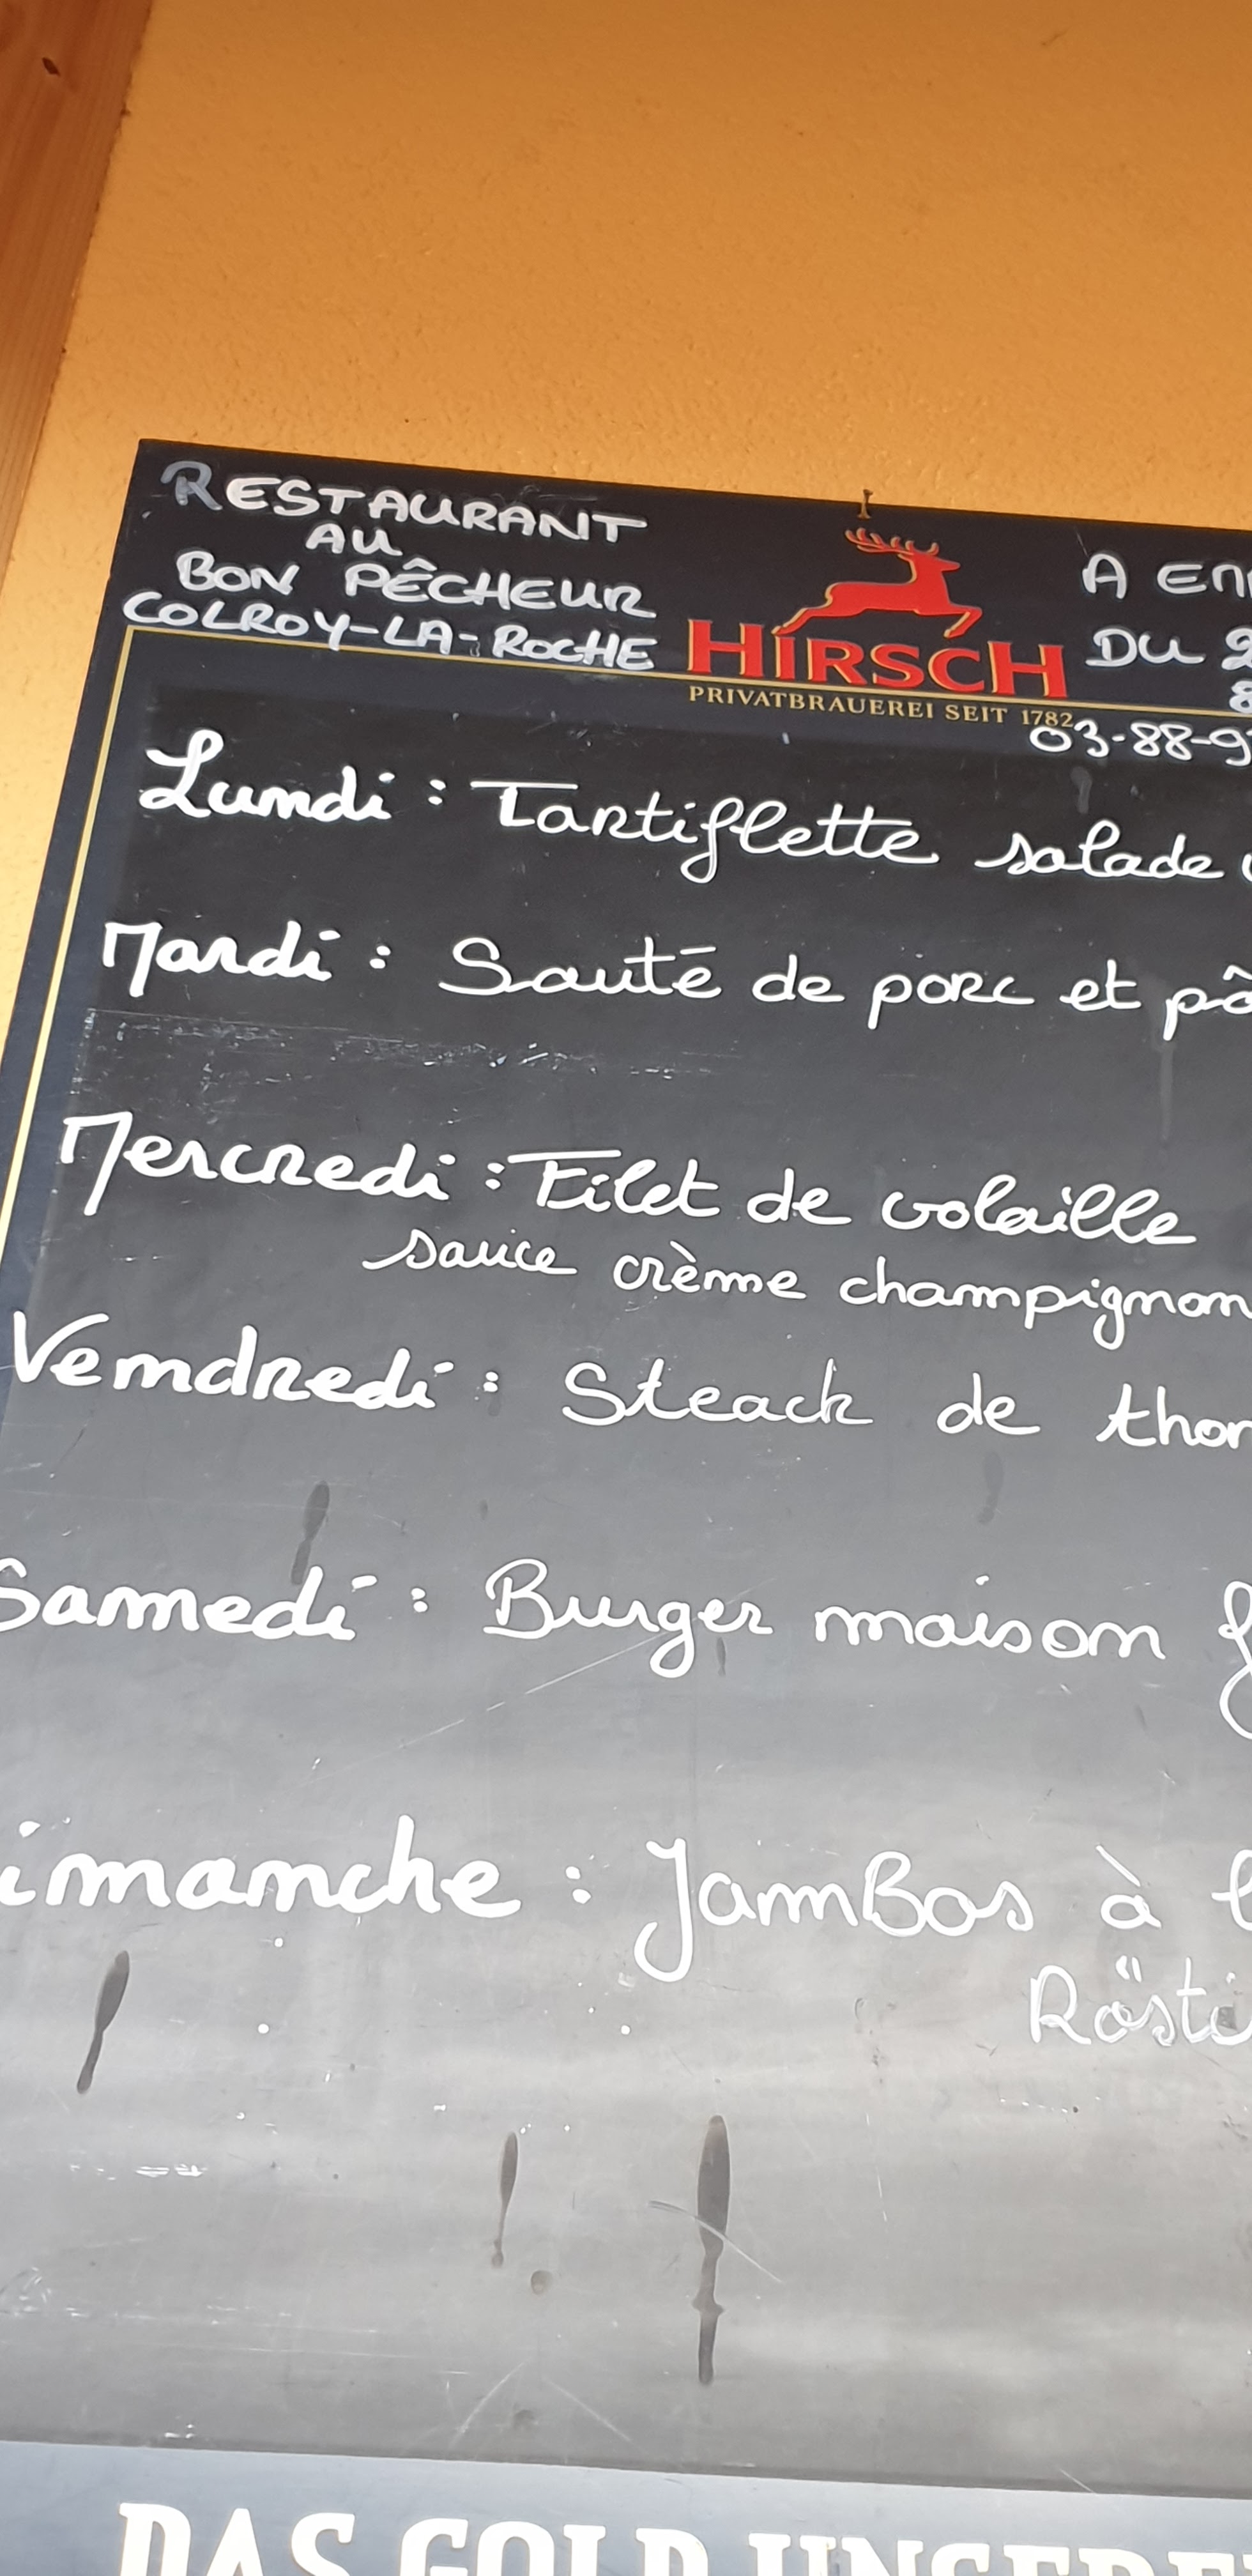 RESTAURANT
AU
BON PÊCHEUR
COLROY-LA-ROCHE
HIRSCH
PRIVATBRAUEREI SEIT 1782
A
DU
03-88-9
Lundi : Tartiflette salade
Mardi : Sauté de porc et
Mercredi : Filet de volaille
sauce crème champignon
Vendredi : Steack de
Samedi : Burger maison
imanche : JamBos à
Rösti
DAS GOLD UNSERE